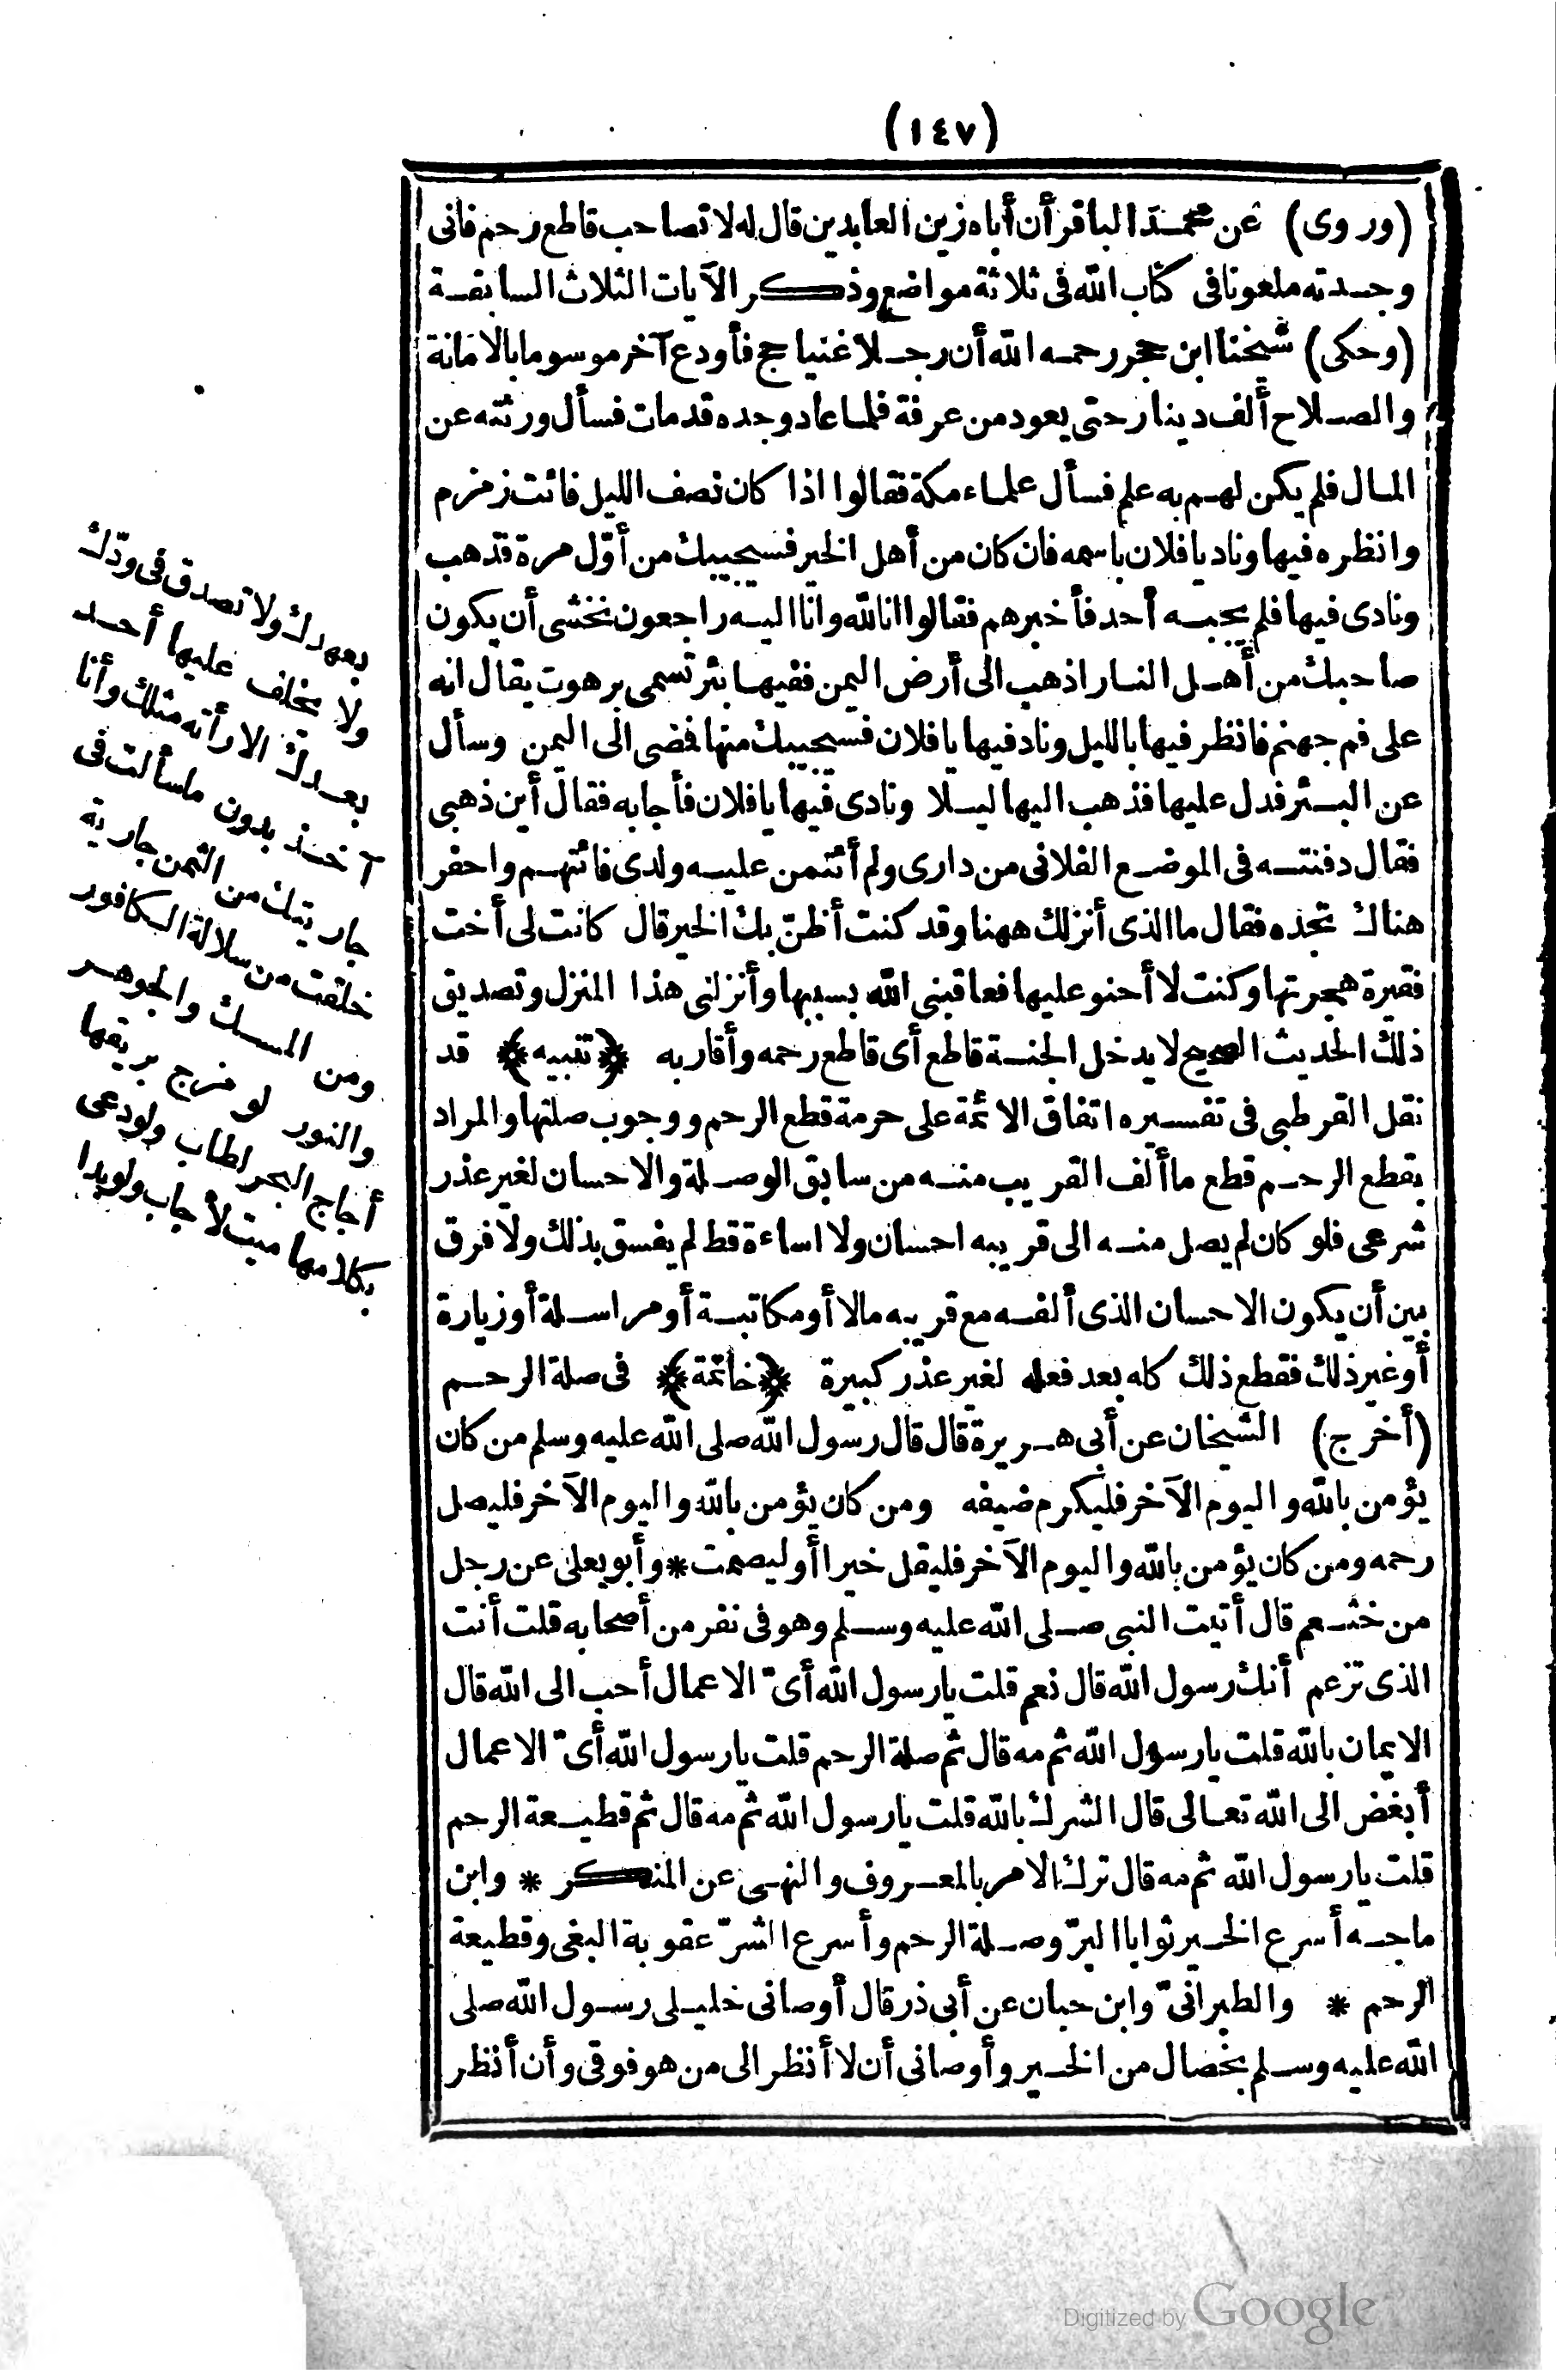 (١٤٧)
(وروى) عن محمد الباقر أن أباه زين العابدين قال له لا تصاحب قاطع رحم فانى
وجدته ملعونا فى كتاب الله فى ثلاثة مواضع وذكر الآيات الثلاث السابقة
(وحكى) شيخنا ابن حجر رحمه الله أن رجلا غنيا حج فأودع آخر موسوما بالامانة
والصلاح ألف دينار حتى يعود من عرفة فلما عاد وجده قد مات فسأل ورثته عن
المال فلم يكن لهم به علم فسأل علماء مكة فقالوا اذا كان نصف الليل فائت زمزم
وانظره فيها وناد يا فلان باسمه فان كان من أهل الخير فسيجيبك من أوّل مرة قذهب
ونادى فيها فلم يجبه أحد فأخبرهم فقالوا انا لله وانا اليه راجعون نخشى أن يكون
صاحبك من أهل النار اذهب الى أرض اليمن ففيها بئر تسمى برهوت يقال انه
على فم جهنم فانظر فيها بالليل وناد فيها يا فلان فسيجيبك منها فضى الى اليمن وسأل
عن البئر فدل عليها فذهب اليها ليلا ونادى فيها يا فلان فأجابه فقال أين ذهبى
فقال دفنته فى الموضع الفلانى من دارى ولم أئتمن عليه ولدى فائتهم واحفر
هناك تجده فقال ما الذى أنزلك ههنا وقد كنت أظنّ بك الخير قال كانت لى أخت
فقيرة هجرتها وكنت لا أحنو عليها فعاقبنى الله بسببها وأنزلنى هذا المنزل وتصديق
ذلك الحديث الصحيح لا يدخل الجنة قاطع أى قاطع رحمه وأقاربه ﴿تنبيه﴾ قد
نقل القرطبى فى تفسيره اتفاق الائمة على حرمة قطع الرحم ووجوب صلتها والمراد
بقطع الرحم قطع ما ألف القريب منه من سابق الوصلة والاحسان لغير عذر
شرعى فلو كان لم يصل منه الى قريبه احسان ولا اساءة قط لم يفسق بذلك ولا فرق
بين أن يكون الاحسان الذى ألفه مع قريبه مالا أو مكاتبة أو مراسلة أو زيارة
أو غير ذلك فقطع ذلك كله بعد فعله لغير عذر كبيرة ﴿خاتمة﴾ فى صلة الرحم
(أخرج) الشيخان عن أبى هريرة قال قال رسول الله صلى الله عليه وسلم من كان
يؤمن بالله واليوم الآخر فليكرم ضيفه ومن كان يؤمن بالله واليوم الآخر فليصل
رحمه ومن كان يؤمن بالله واليوم الآخر فليقل خيرا أو ليصمت * وأبو يعلى عن رجل
من خثعم قال أتيت النبى صلى الله عليه وسلم وهو فى نفر من أصحابه قلت أنت
الذى تزعم أنك رسول الله قال نعم قلت يا رسول الله أىّ الاعمال أحب الى الله قال
الايمان بالله قلت يا رسول الله ثم مه قال ثم صلة الرحم قلت يا رسول الله أىّ الاعمال
أبغض الى الله تعالى قال الشرك بالله قلت يا رسول الله ثم مه قال ثم قطيعة الرحم
قلت يا رسول الله ثم مه قال ترك الامر بالمعروف والنهى عن المنكر * وابن
ماجه أسرع الخير ثوابا البرّ وصلة الرحم وأسرع الشرّ عقوبة البغى وقطيعة
الرحم * والطبرانىّ وابن حبان عن أبى ذر قال أوصانى خليلى رسول الله صلى
الله عليه وسلم بخصال من الخير وأوصانى أن لا أنظر الى من هو فوقى وأن أنظر
بعهدك ولا تصدق فى ودّك
ولا يخلف عليها أحد
بعدك الا رأته مثلك وأنا
آخذ بدون ما سألت فى
جاريتك من الثمن جارية
خلقت من سلالة الكافور
ومن المسك والجوهر
والنور لو مزج بريقها
أجاج البحر لطاب ولو دعى
بكلامها ميت لأجاب ولو بدا
Digitized by Google